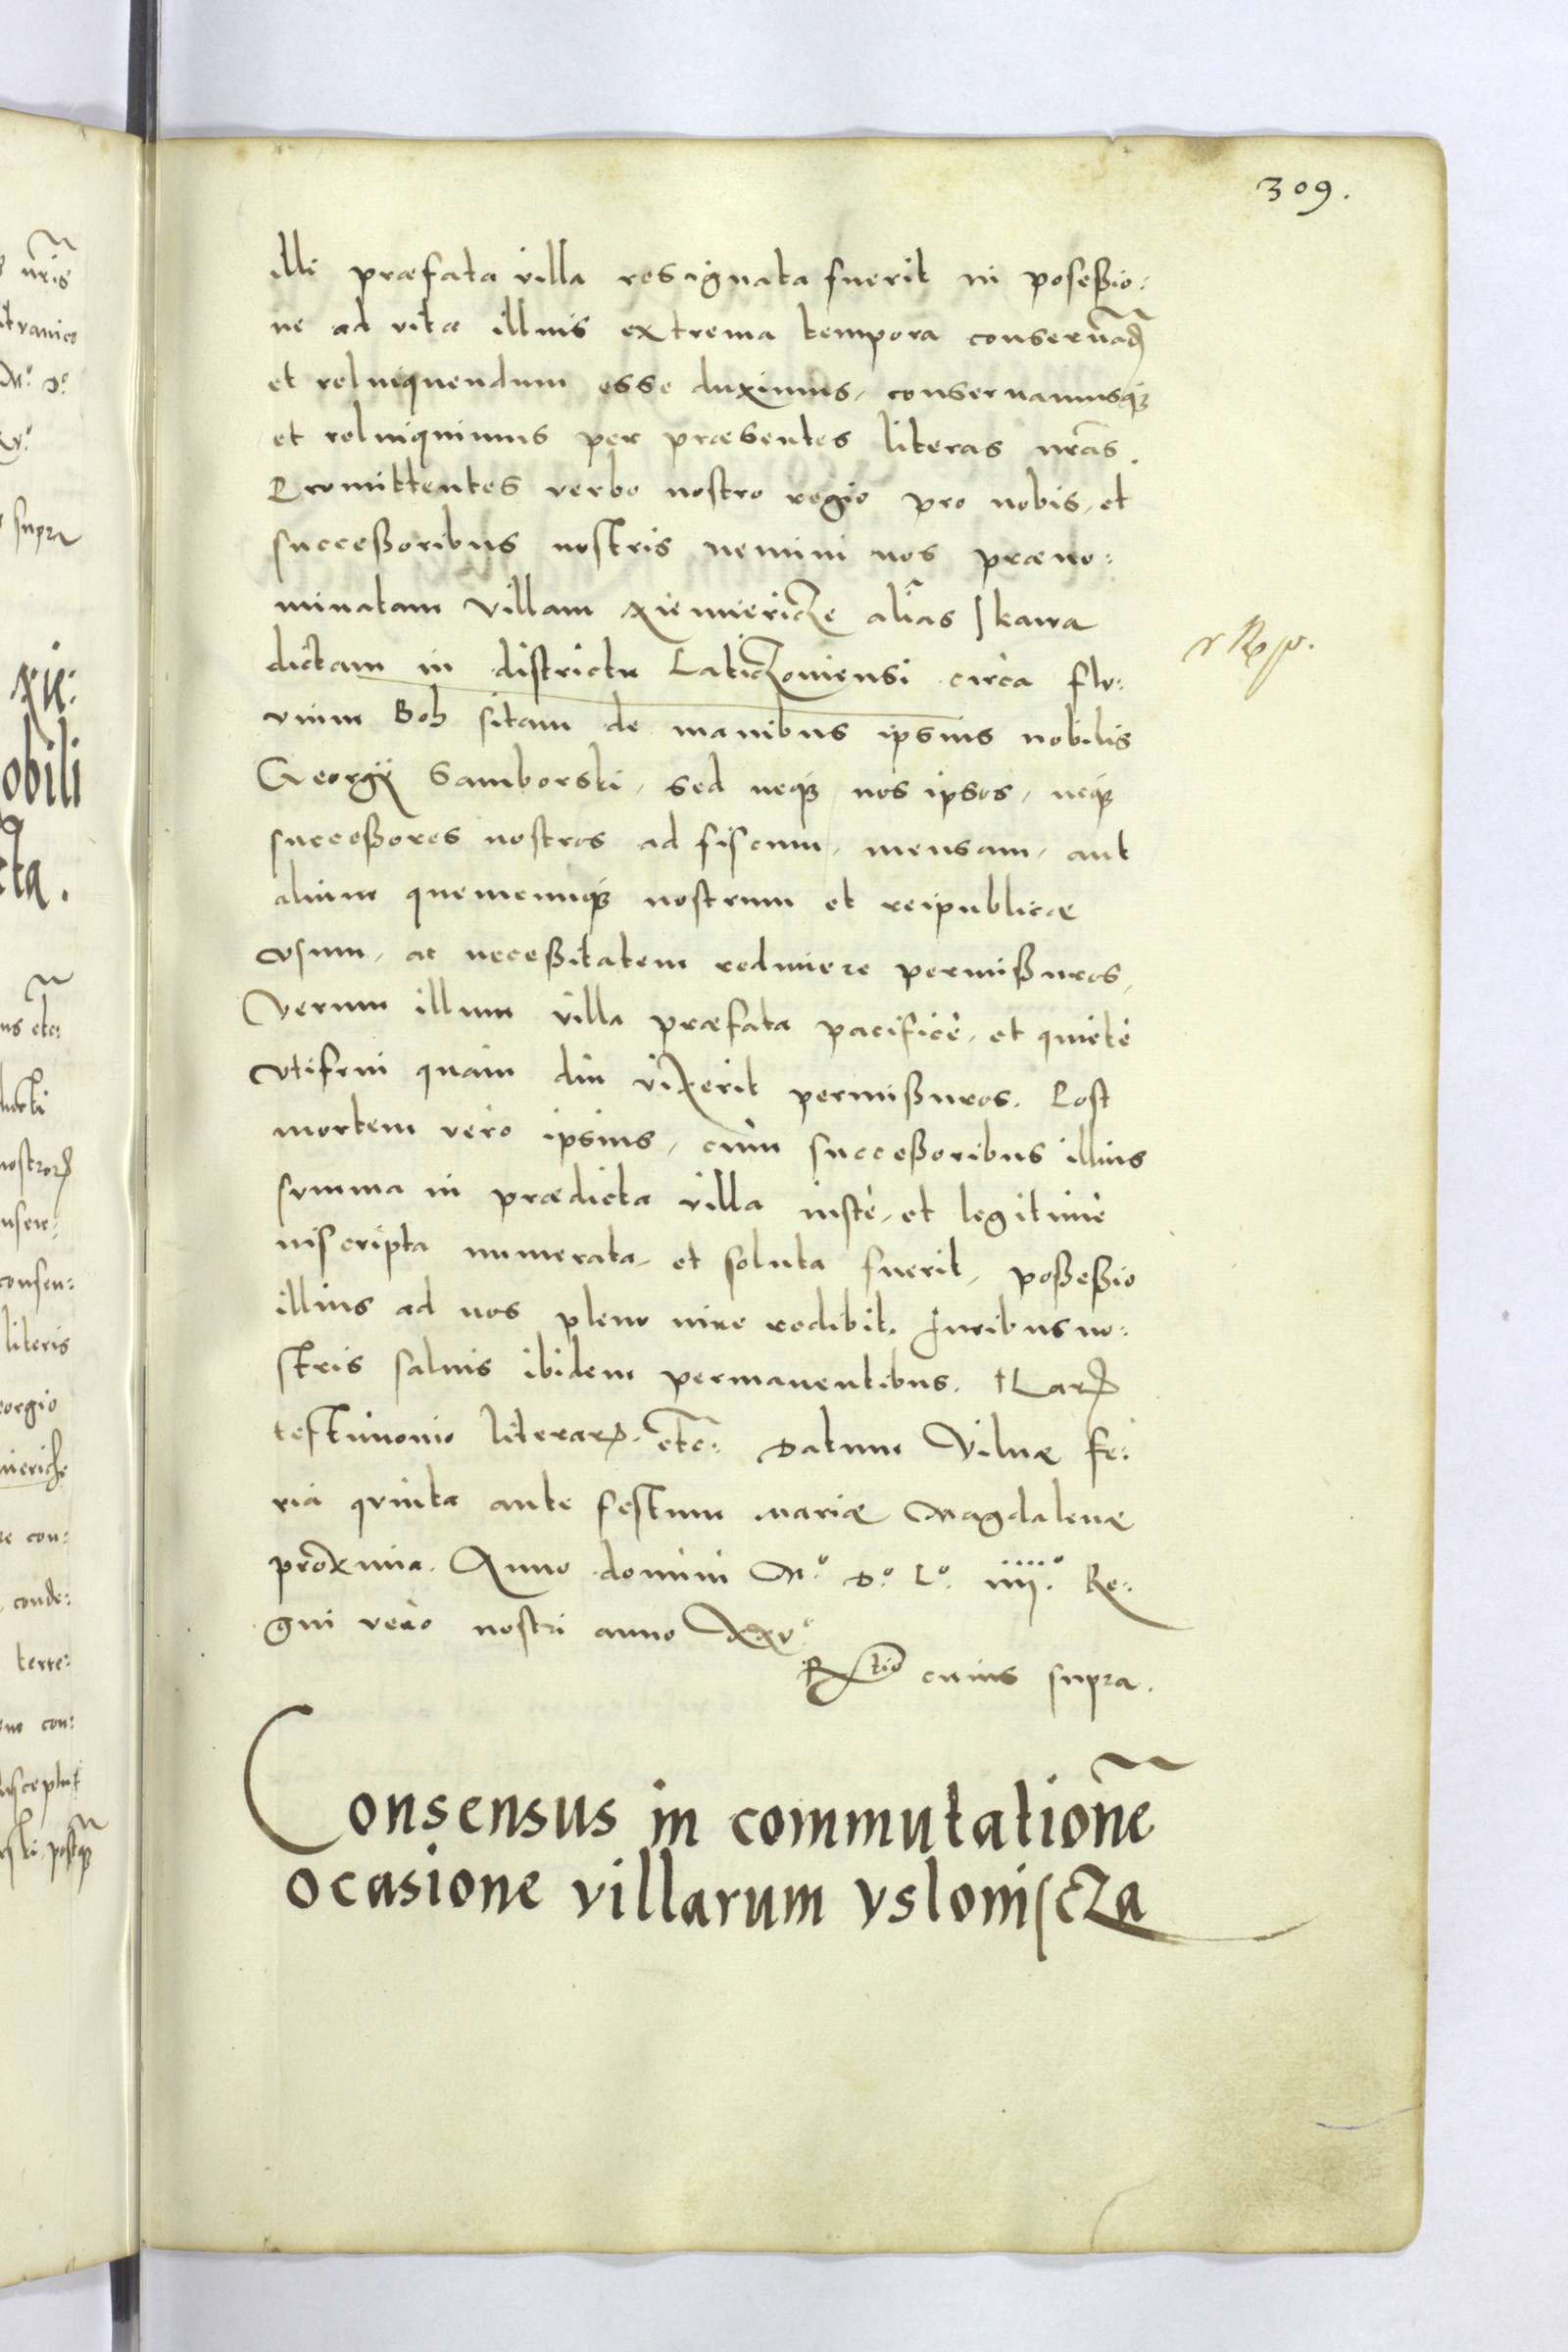 309.
illi præfata villa resignata fuerit in poseßio:
ne ad vitæ illius extrema tempora conseruãd
et relinquendum esse duximus, conseruamusq;
et relinquimus per præsentes literas nr̃as.
Promittentes verbo nostro regio pro nobis, et
succeßoribus nostris nemini nos præno:
minatam villam Xiemiericze aliãs Skawa
dictam in districtu Laticzouiensi circa flu:
uium Boh sitam de manibus ipsius nobilis
Georgij Samborski, sed neq; nos ipsos, neq;
succeßores nostros ad fiscum, mensam, aut
alium quemcunq; nostrum et reipublicæ
vsum, ac neceßitatem redimere permißuros,
Verum illum villa præfata pacificè, et quietè
vtifrui quàm diu vixerit permißuros. Post
mortem verò ipsius, cùm succeßoribus illius
summa in prædicta villa iustè, et legitimè
inscripta numerata, et soluta fuerit, poßeßio
illius ad nos pleno iure redibit. Iuribus no:
stris saluis ibidem permanentibus. Harꝝ
testimonio literarꝝ. etc̃: Datum Vilnæ fe:
ria quinta ante festum Mariæ Magdalenæ
proxima. Anno domini M.º D.º L.º iiij.º Re:
gni verò nostri anno XXv.º
R̃tio cuius supra.
Consensus in commutationẽ
ocasione villarum vsloniscza